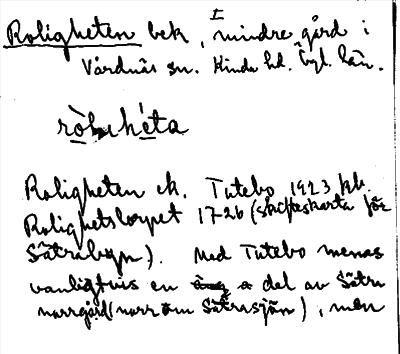 Roligheten bek., mindre gård i
Vårdnäs sn. Kinda hd. Ögl. län.
Roligheten ek. Tutebo 1923 jrk.
Rolighetstorpet 1726 (skifteskarta för
Sätraby). Med Tutebo menas
vanligtvis en del av Sätra
norrgård (norr om Sätrasjön), men